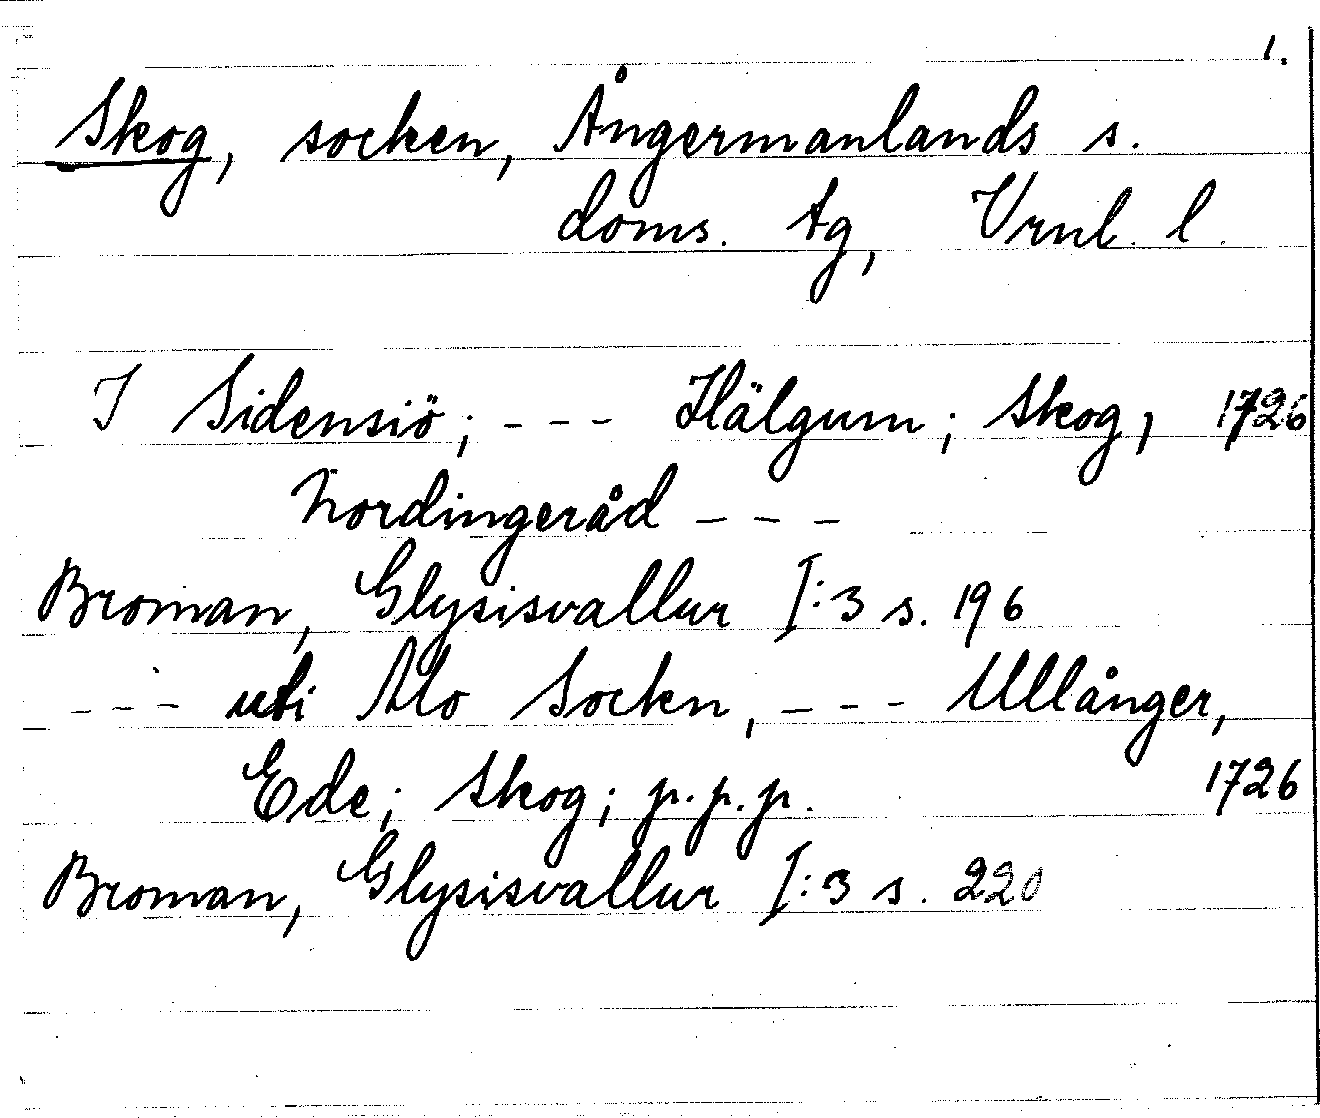 1.
Skog, socken, Ångermanlands s.
doms. tg, Vrnl. l.
I Sidensiö; --- Hälgum; Skog, 1726
Nordingeråd ---
Broman, Glysisvallur I:3 s. 196
--- uti Alo Socken, --- Ullånger,
Ede; Skog; p.p.p. 1726
Broman, Glysisvallur I:3 s. 220